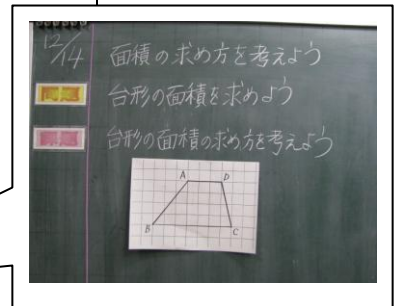 12/14
面積の求め方を考えよう
問題
台形の面積を求めよう
課題
台形の面積の求め方を考えよう
A D
B C